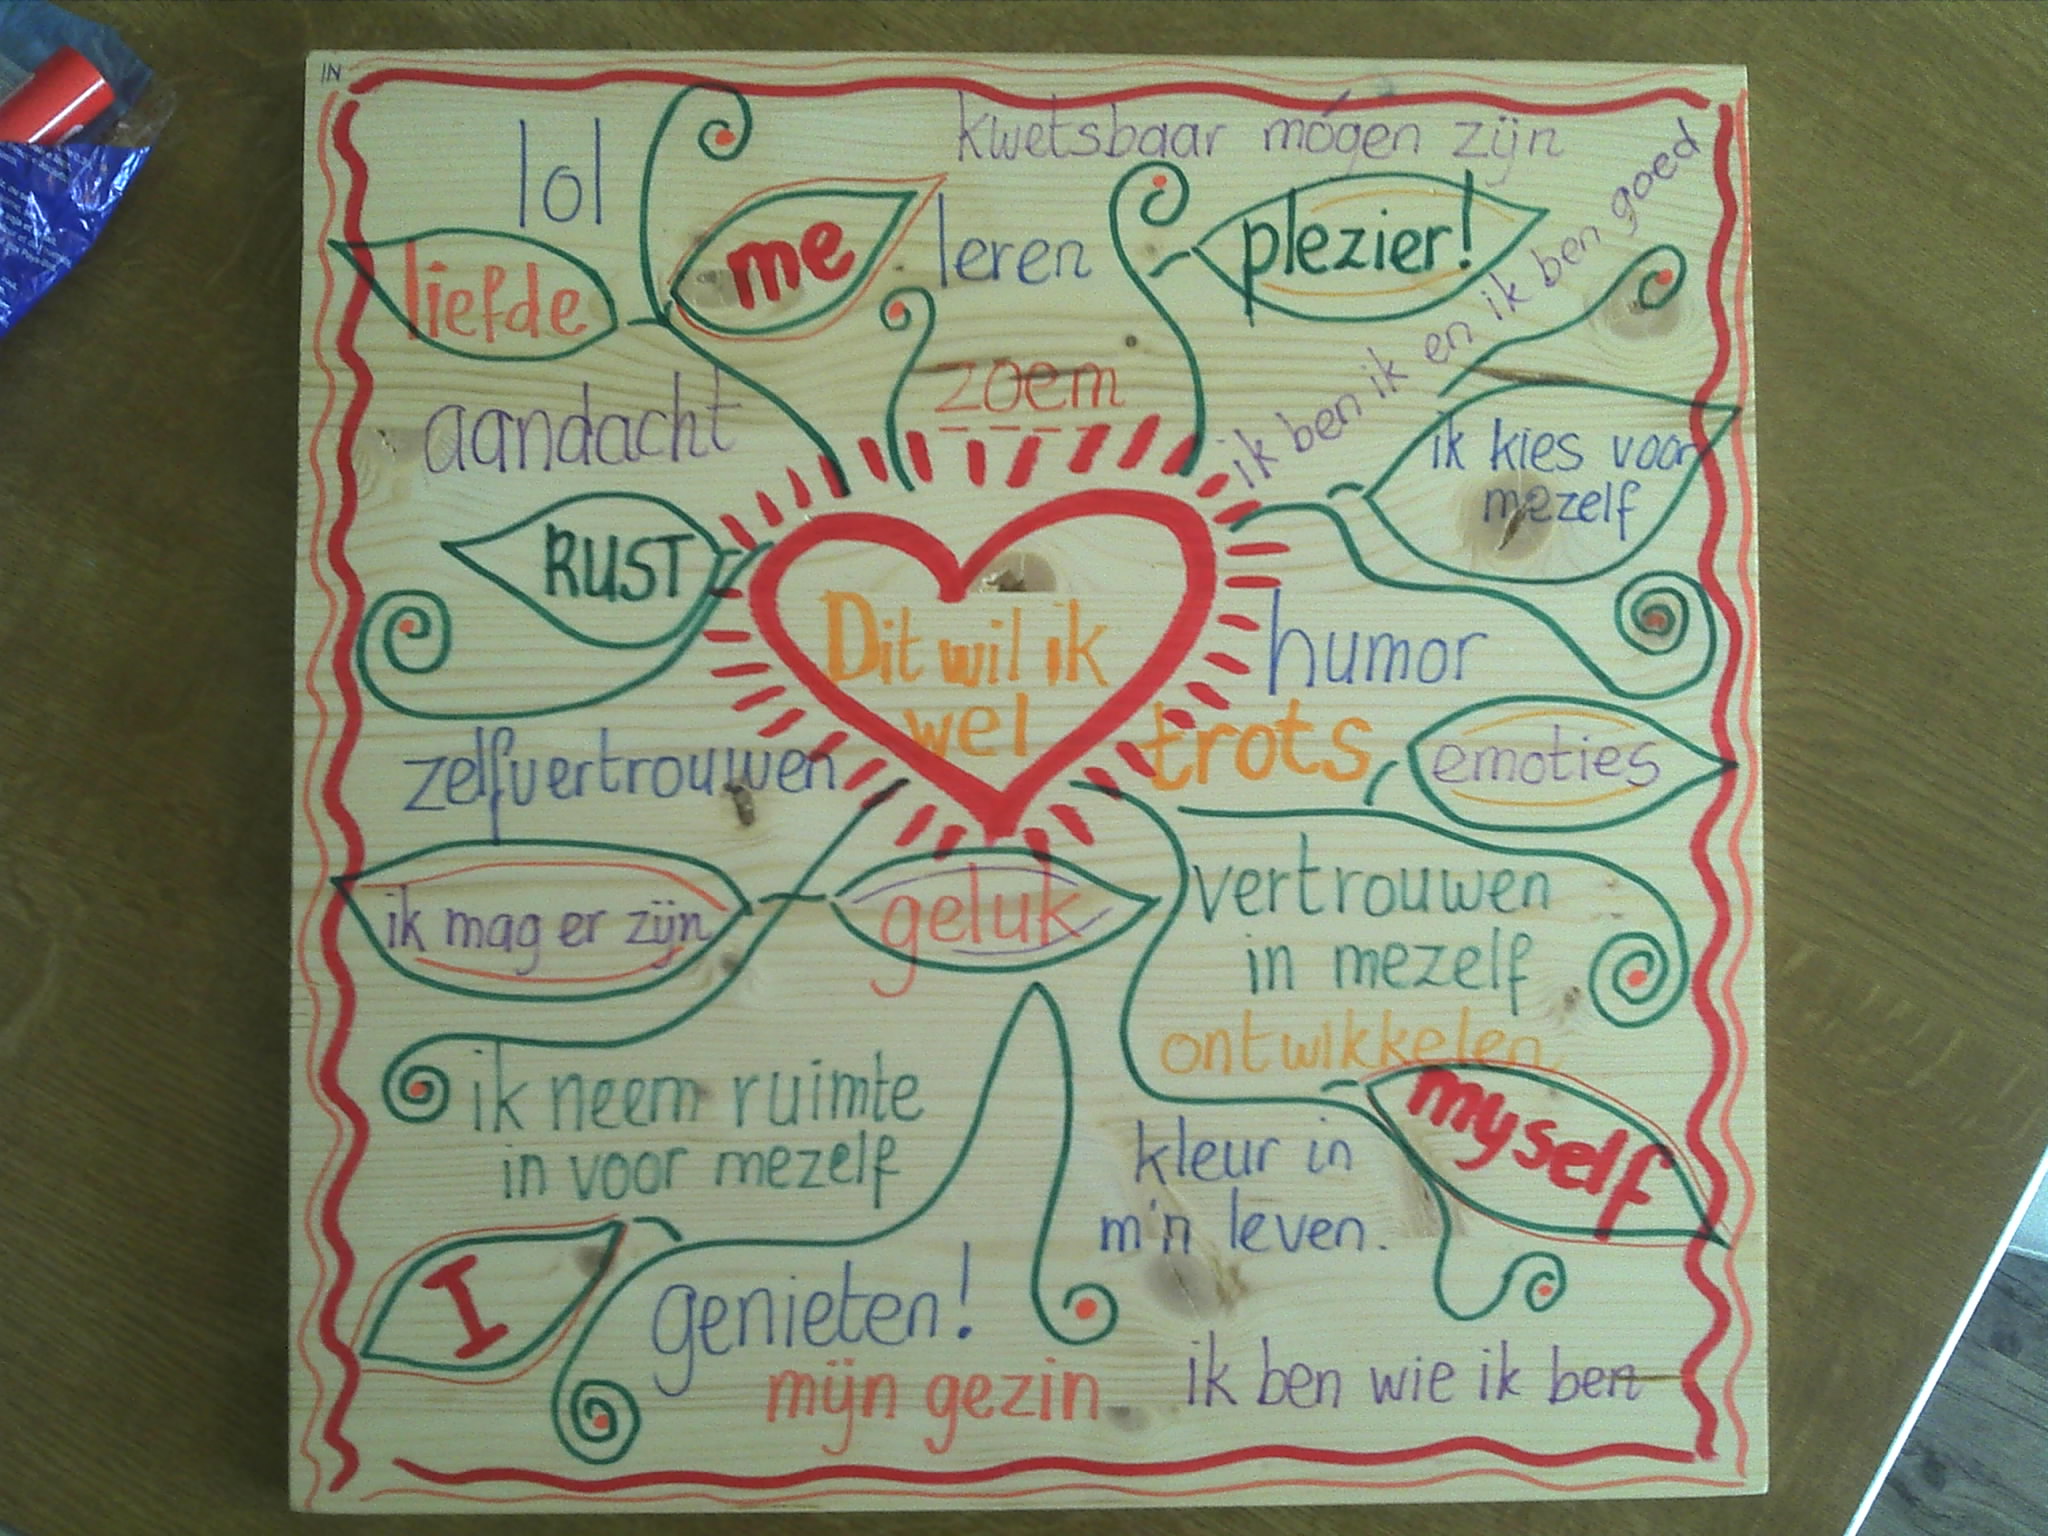 IN
lol
kwetsbaar mógen zijn
liefde
me
leren
plezier!
ik ben ik en ik ben goed
aandacht
zoem
ik kies voor
mezelf
RUST
Dit wil ik
wel
humor
trots
emoties
zelfvertrouwen
ik mag er zijn
geluk
vertrouwen
in mezelf
ontwikkelen
ik neem ruimte
in voor mezelf
myself
kleur in
m'n leven.
I
genieten!
mijn gezin
ik ben wie ik ben